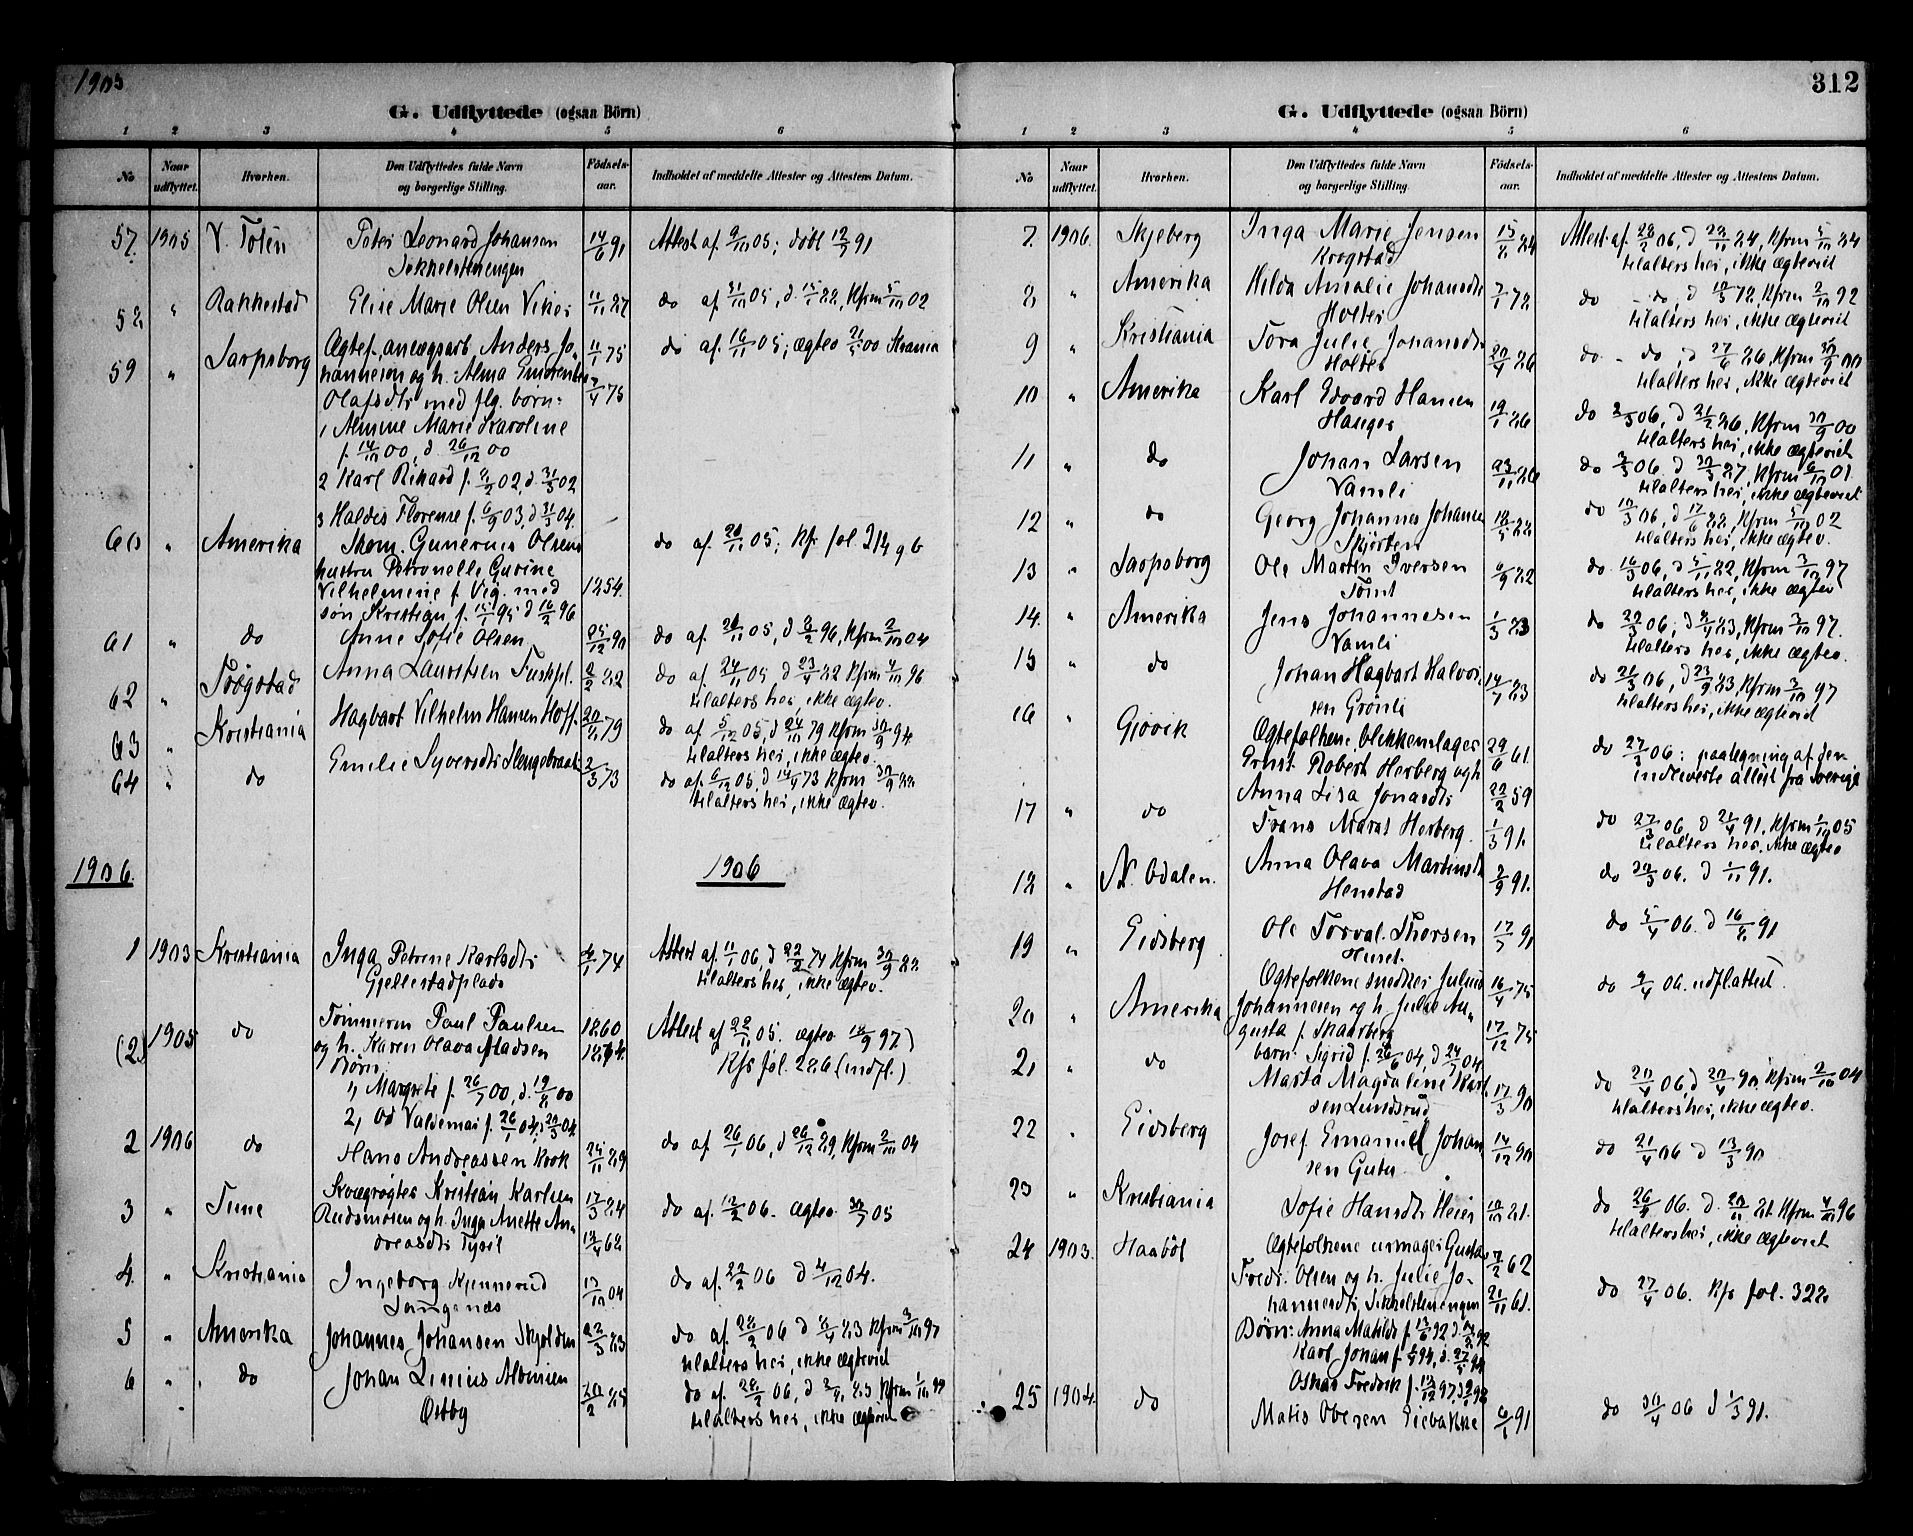 1905
G. Udflyttede (ogsaa Börn)
1 2 3 4 5 6
No
Naar udflyttet.
Hvorhen.
Den Udflyttedes fulde Navn og borgerlige Stilling.
Födsels-aar.
Indholdet af meddelte Attester og Attestens Datum.
57. 1905 V. Toten Peter Leonard Johansen 14/6 91 Attest af 9/10 05; döbt 12/7 91
58 " Rakkestad Elise Marie Olsen Viker 11/11 87 do af 31/10 05, d. 15/1 88, Kfrm 5/10 02
59 " Sarpsborg Ægtef. anlægsarb. Anders Jo- 11/1 75 do af. 16/11 05; ægtev 21/5 00 Krania
hannesen og h. Alma 7/4 75
Olafsdtr med flg. börn:
1 Almine Marie Karoline
f. 14/10 00, d. 26/12 00
2 Karl Rikard f. 8/2 02, d. 31/3 02
3 Haldis Florense f. 6/9 03, d 31/3 04.
60 " Amerika Skom. Gunerius Olsens do af. 20/11 05; Kfr fol. 214 g 6
hustru Petronelle Gurine
Vilhelmine f. Vig. med 1854.
sön Kristian f. 15/1 95 d 16/2 96
61 " do Anne Sofie Olsen 25/12 90 do af. 20/11 05, d 8/2 96, Kfrm 2/10 04
62 " Trögstad Anna Lauritsen Tuskpl. 2/2 82 do af. 24/11 05 d 23/4 82 Kfrm 4/10 96
tilalters her, ikke ægtev.
63 " Kristiania Hagbart Vilhelm Hansen Hoff. 20/11 79 do af. 5/12 05, d 24/11 79 Kfrm 30/9 94
tilalters her, ikke ægtev.
64 " do Emilie Syversdtr Slengebraat. 2/3 73 do af. 6/12 05, d 14/4 73 Kfrm 30/9 88
tilalters her, ikke ægtev.
1906. 1906
1 1903 Kristiania Inga Petrine Karlsdtr 4/1 74 Attest af. 11/1 06, d 22/2 74 Kfrm 30/9 88
Gjellestadplads tilalters her, ikke ægtev.
(2) 1905 do Tömmerm Paul Paulsen 1860 Attest af 22/11 05. ægtev 18/9 97)
og h. Karen Olava Madsen 1874. Kfr fol. 286 (indfl.)
Börn:
1, Margrete f. 26/7 00, d. 19/8 00
2, Od Valdemar f. 26/1 04, d 20/3 04.
2 1906 do Hans Andreassen Krok 25/11 89 do af. 26/1 06, d 26/12 89, Kfrm 2/10 04
3 " Tune Skovrögter Kristian Karlsen 17/3 84 do af. 12/2 06. ægtev 30/7 05
Rudsmosen og h. Inga Anette An- 13/4 62
dreasdtr
4. " Kristiania Ingeborg Kjennerud 17/10 04 do af. 22/2 06 d 4/12 04.
Langenæs
5 " Amerika Johannes Johansen Skjolden 22/3 83 do af 28/2 06 d 8/4 83 Kfrm 3/10 97
tilalters her, ikke ægteviet
6 " do Johan Linius Albinsen 20/2 85 do af. 28/2 06,
Østby tilalters her, ikke ægteviet
312
G. Udflyttede (ogsaa Börn)
1 2 3 4 5 6
No
Naar udflyttet.
Hvorhen.
Den Udflyttedes fulde Navn og borgerlige Stilling.
Födsels-aar.
Indholdet af meddelte Attester og Attestens Datum.
7. 1906. Skjeberg Inga Marie Jensen 15/8 84 Attest af. 28/2 06, d 23/11 84, Kfrm 5/10 84
Krogstad tilalters her, ikke ægteviet
8 " Amerika Hilda Amalie Johansdtr 7/1 78 do - do, d 10/3 78, Kfrm 2/10 92
Holter tilalters her, ikke ægteviet
9 " Kristiania Tora Julie Johansdtr 20/4 86 do - do, d 27/6 86, Kfrm 30/9 00
Holter tilalters her, ikke ægteviet
10 " Amerika Karl Edvard Hansen 19/1 86 do 2/3 06, d 21/2 86, Kfrm 30/9 00
tilalters her, ikke ægteviet
11 " do Johan Larsen 23/11 86 do 3/3 06. d 20/3 87, Kfrm 6/10 01
Vamli tilalters her, ikke ægteviet
12 " do Georg Johannes Johansen 18/5 88 do 10/3 06, d 17/6 88, Kfrm 5/10 02
Skjörten tilalters her, ikke ægtev.
13 " Sarpsborg Ole Martin Iversen 6/9 82 do 16/3 06, d 5/11 82, Kfrm 3/10 97
Tomt tilalters her, ikke ægtev
14. " Amerika Jens Johannesen 1/3 83 do 22/3 06; d 8/4 83, Kfrm 3/10 97.
Vamli tilalters her, ikke ægtev.
15 " do Johan Hagbart Halvor- 14/7 83 do 26/3 06, d 23/9 83, Kfrm 3/10 97
sen Grönli tilalters her, ikke ægteviet
16 " Gjövik Ægtefolkene blikkenslager 29/6 61. do 27/3 06: paategning af den
Ernst Robert Herberg og h indleverte attest fra Sverige
Anna Lisa Jonasdtr 22/2 59
17 " do Frans Herberg 1/3 91. do 27/3 06, d 21/4 91. Kfrm 1/10 05
tilalters her. ikke ægtev
18 " N. Odalen. Anna Olava Martinsdtr 2/9 91. do 20/3 06. d 1/11 91.
Henstad
19 " Eidsberg Ole Torval. Thorsen 17/7 91 do 5/4 06. d 16/8 91
Huset.
20 " Amerika Ægtefolkene snedker Julius 16/4 75 do 9/4 06. udfl.attest.
Johannesen og h. Julie Au-
gusta f. Skaarberg 17/12 75
barn: Sigrid f. 26/6 04, d 24/7 04
21 " do Marta Magdaline Karl- 17/3 90 do 20/4 06, d 20/4 90, Kfrm 2/10 04
sen Lundsrud tilalters her, ikke ægtev.
22 " Eidsberg Josef Emanuel Johan- 14/12 90 do 21/4 06 d 13/3 90
sen
23 " Kristiania Sofie Hansdtr Heier 10/10 81. do 26/4 06. d. 20/11 81 Kfrm 4/10 96
tilalters her, ikke ægteviet
24 1903. Haaböl Ægtefolkene urmager Gustav 7/2 62 do 27/4 06. Kfr fol. 322
Fredr. Olsen og h. Julie Jo-
hannesdtr, Sikkelstenengen 21/11 61.
Börn: Anna Matilde f. 13/6 92
Karl Johan
Oskar Fredrik
25 1904. do Matis Olsen 6/1 91 do 30/4 06 d 1/3 91.